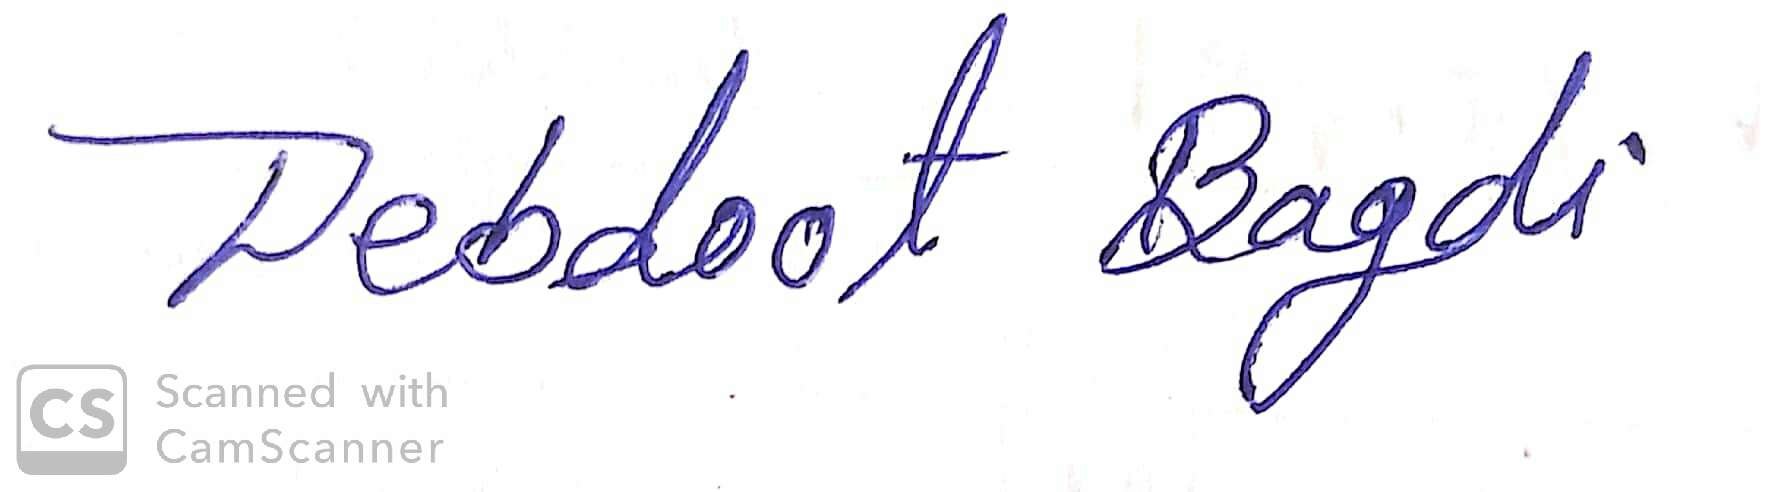 Debdoot Bagdi
CS Scanned with
CamScanner